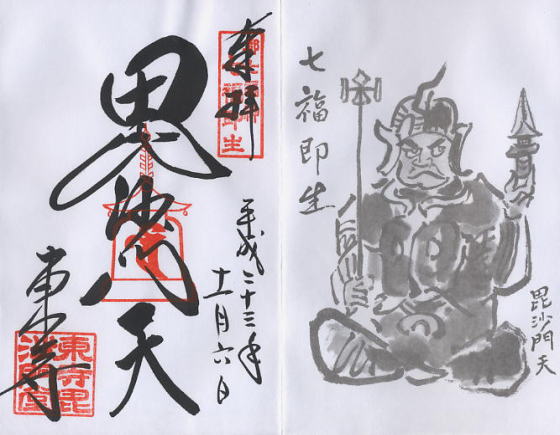 奉拝
平成二十三年
十一月六日
毘沙門天
東寺
東寺毘
沙門堂
七福即生
毘沙門天